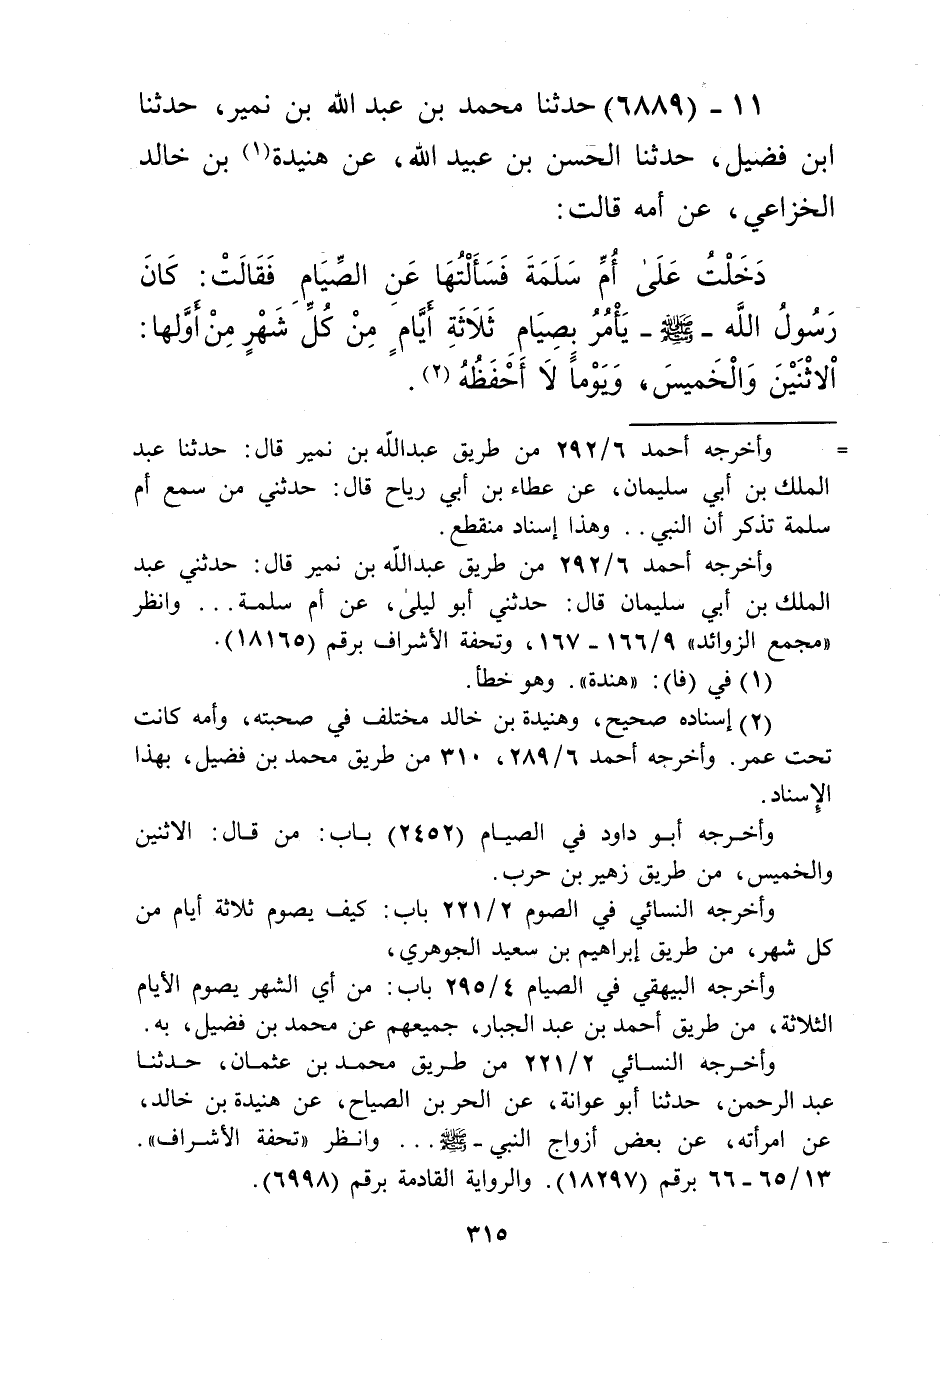 ١١ - (٦٨٨٩) حدثنا محمد بن عبد الله بن نمير، حدثنا
ابن فضيل، حدثنا الحسن بن عبيد الله، عن هنيدة(١) بن خالد
الخزاعي، عن أمه قالت:
دَخَلْتُ عَلَىٰ أُمِّ سَلَمَةَ فَسَأَلْتُهَا عَنِ الصِّيَامِ فَقَالَتْ: كَانَ
رَسُولُ اللَّه - ﷺ - يَأْمُرُ بِصِيَامِ ثَلَاثَةِ أَيَّامٍ مِنْ كُلِّ شَهْرٍ مِنْ أَوَّلها:
اْلاثْنَيْنَ وَالْخَمِيسَ، وَيَوْماً لَا أَحْفَظُهُ (٢).
= وأخرجه أحمد ٢٩٢/٦ من طريق عبدالله بن نمير قال: حدثنا عبد
الملك بن أبي سليمان، عن عطاء بن أبي رياح قال: حدثني من سمع أم
سلمة تذكر أن النبي.. وهذا إسناد منقطع.
وأخرجه أحمد ٢٩٢/٦ من طريق عبدالله بن نمير قال: حدثني عبد
الملك بن أبي سليمان قال: حدثني أبو ليلىٰ، عن أم سلمة... وانظر
«مجمع الزوائد» ١٦٦/٩ - ١٦٧، وتحفة الأشراف برقم (١٨١٦٥).
(١) في (فا): «هندة». وهو خطأ.
(٢) إسناده صحيح، وهنيدة بن خالد مختلف في صحبته، وأمه كانت
تحت عمر. وأخرجه أحمد ٢٨٩/٦، ٣١٠ من طريق محمد بن فضيل، بهذا
الإسناد.
وأخرجه أبو داود في الصيام (٢٤٥٢) باب: من قال: الاثنين
والخميس، من طريق زهير بن حرب.
وأخرجه النسائي في الصوم ٢٢١/٢ باب: كيف يصوم ثلاثة أيام من
كل شهر، من طريق إبراهيم بن سعيد الجوهري،
وأخرجه البيهقي في الصيام ٢٩٥/٤ باب: من أي الشهر يصوم الأيام
الثلاثة، من طريق أحمد بن عبد الجبار، جميعهم عن محمد بن فضيل، به.
وأخرجه النسائي ٢٢١/٢ من طريق محمد بن عثمان، حدثنا
عبد الرحمن، حدثنا أبو عوانة، عن الحر بن الصياح، عن هنيدة بن خالد،
عن امرأته، عن بعض أزواج النبي - ﷺ... وانظر «تحفة الأشراف».
٦٥/١٣ - ٦٦ برقم (١٨٢٩٧). والرواية القادمة برقم (٦٩٩٨).
٣١٥